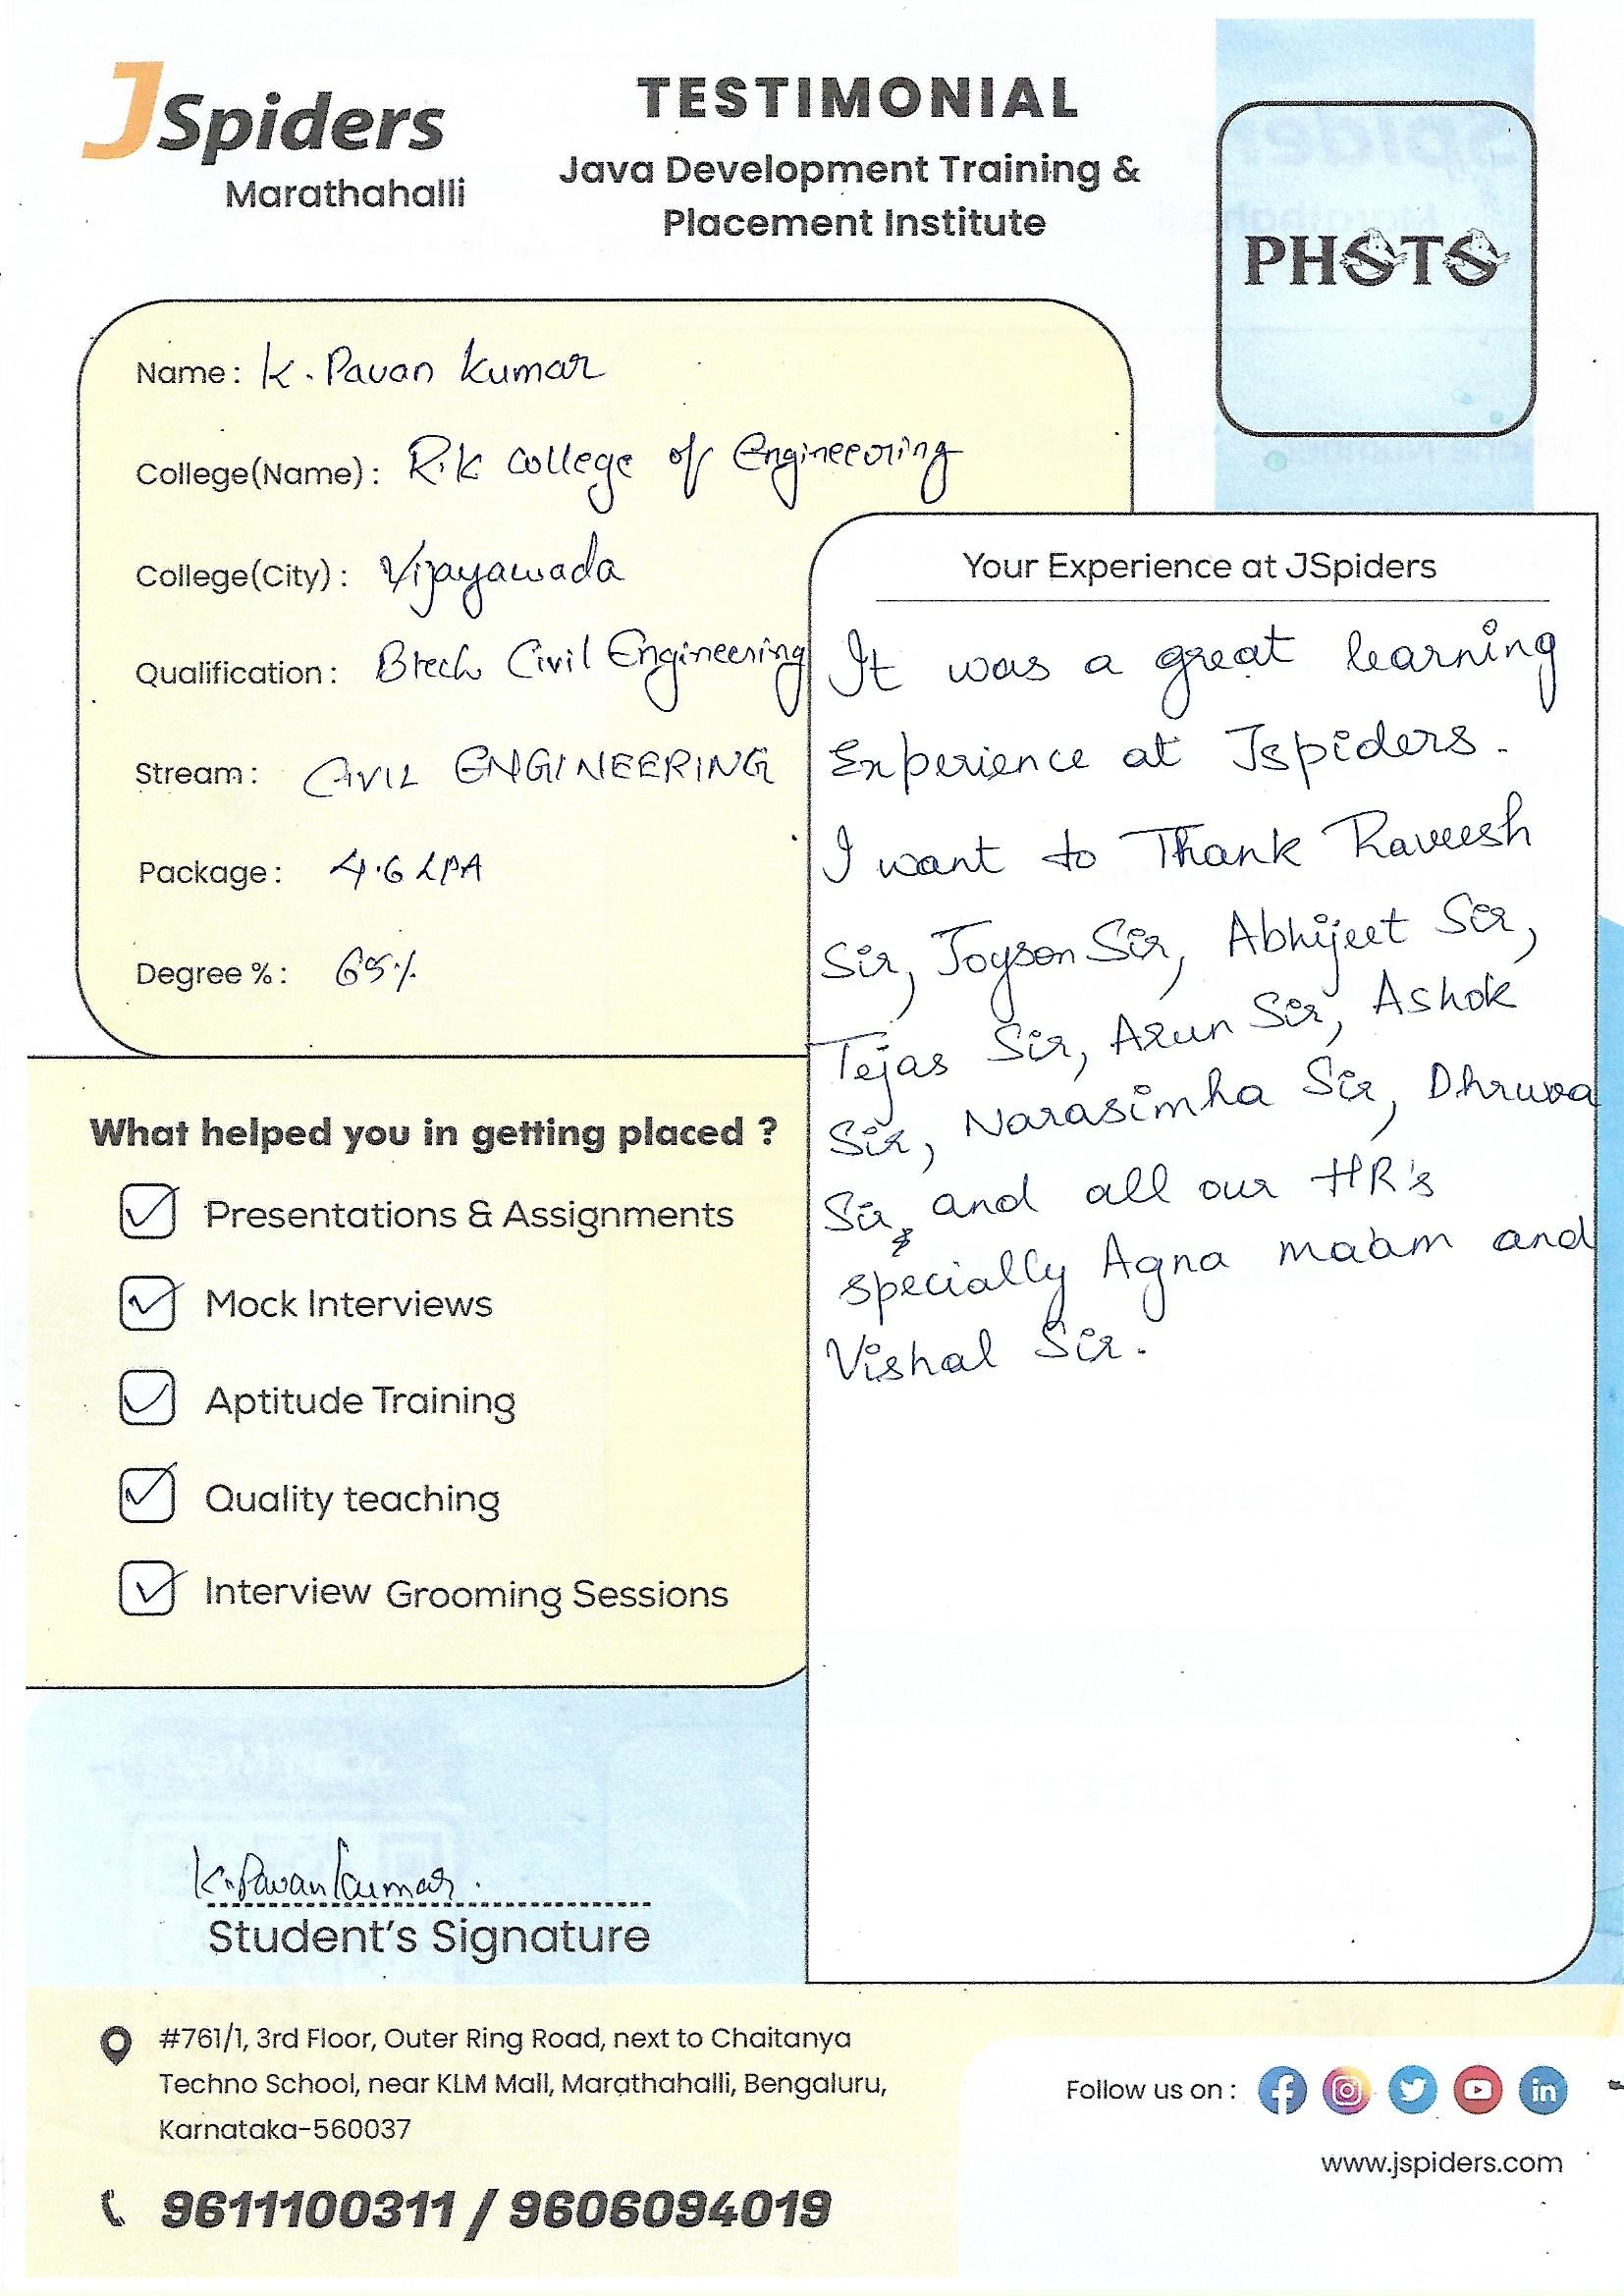 JSpiders
Marathahalli
TESTIMONIAL
Java Development Training &
Placement Institute
PHOTO
Name: K. Pavan Kumar
College(Name): R.K College of Engineering
College(City): Vijayawada
Qualification: Btech Civil Engineering
Stream: CIVIL ENGINEERING
Package: 4.6 LPA
Degree %: 65%
What helped you in getting placed ?
Presentations & Assignments
Mock Interviews
Aptitude Training
Quality teaching
Interview Grooming Sessions
Your Experience at JSpiders
It was a great learning
Experience at Jspiders.
I want to Thank Raveesh
Sir, Joyson Sir, Abhijeet Sir,
Tejas Sir, Arun Sir, Ashok
Sir, Narasimha Sir, Dhruva
Sir, and all our HR's
specially Agna ma'am and
Vishal Sir.
K. Pavan Kumar.
Student's Signature
#761/1, 3rd Floor, Outer Ring Road, next to Chaitanya
Techno School, near KLM Mall, Marathahalli, Bengaluru,
Karnataka-560037
9611100311 / 9606094019
Follow us on :
www.jspiders.com